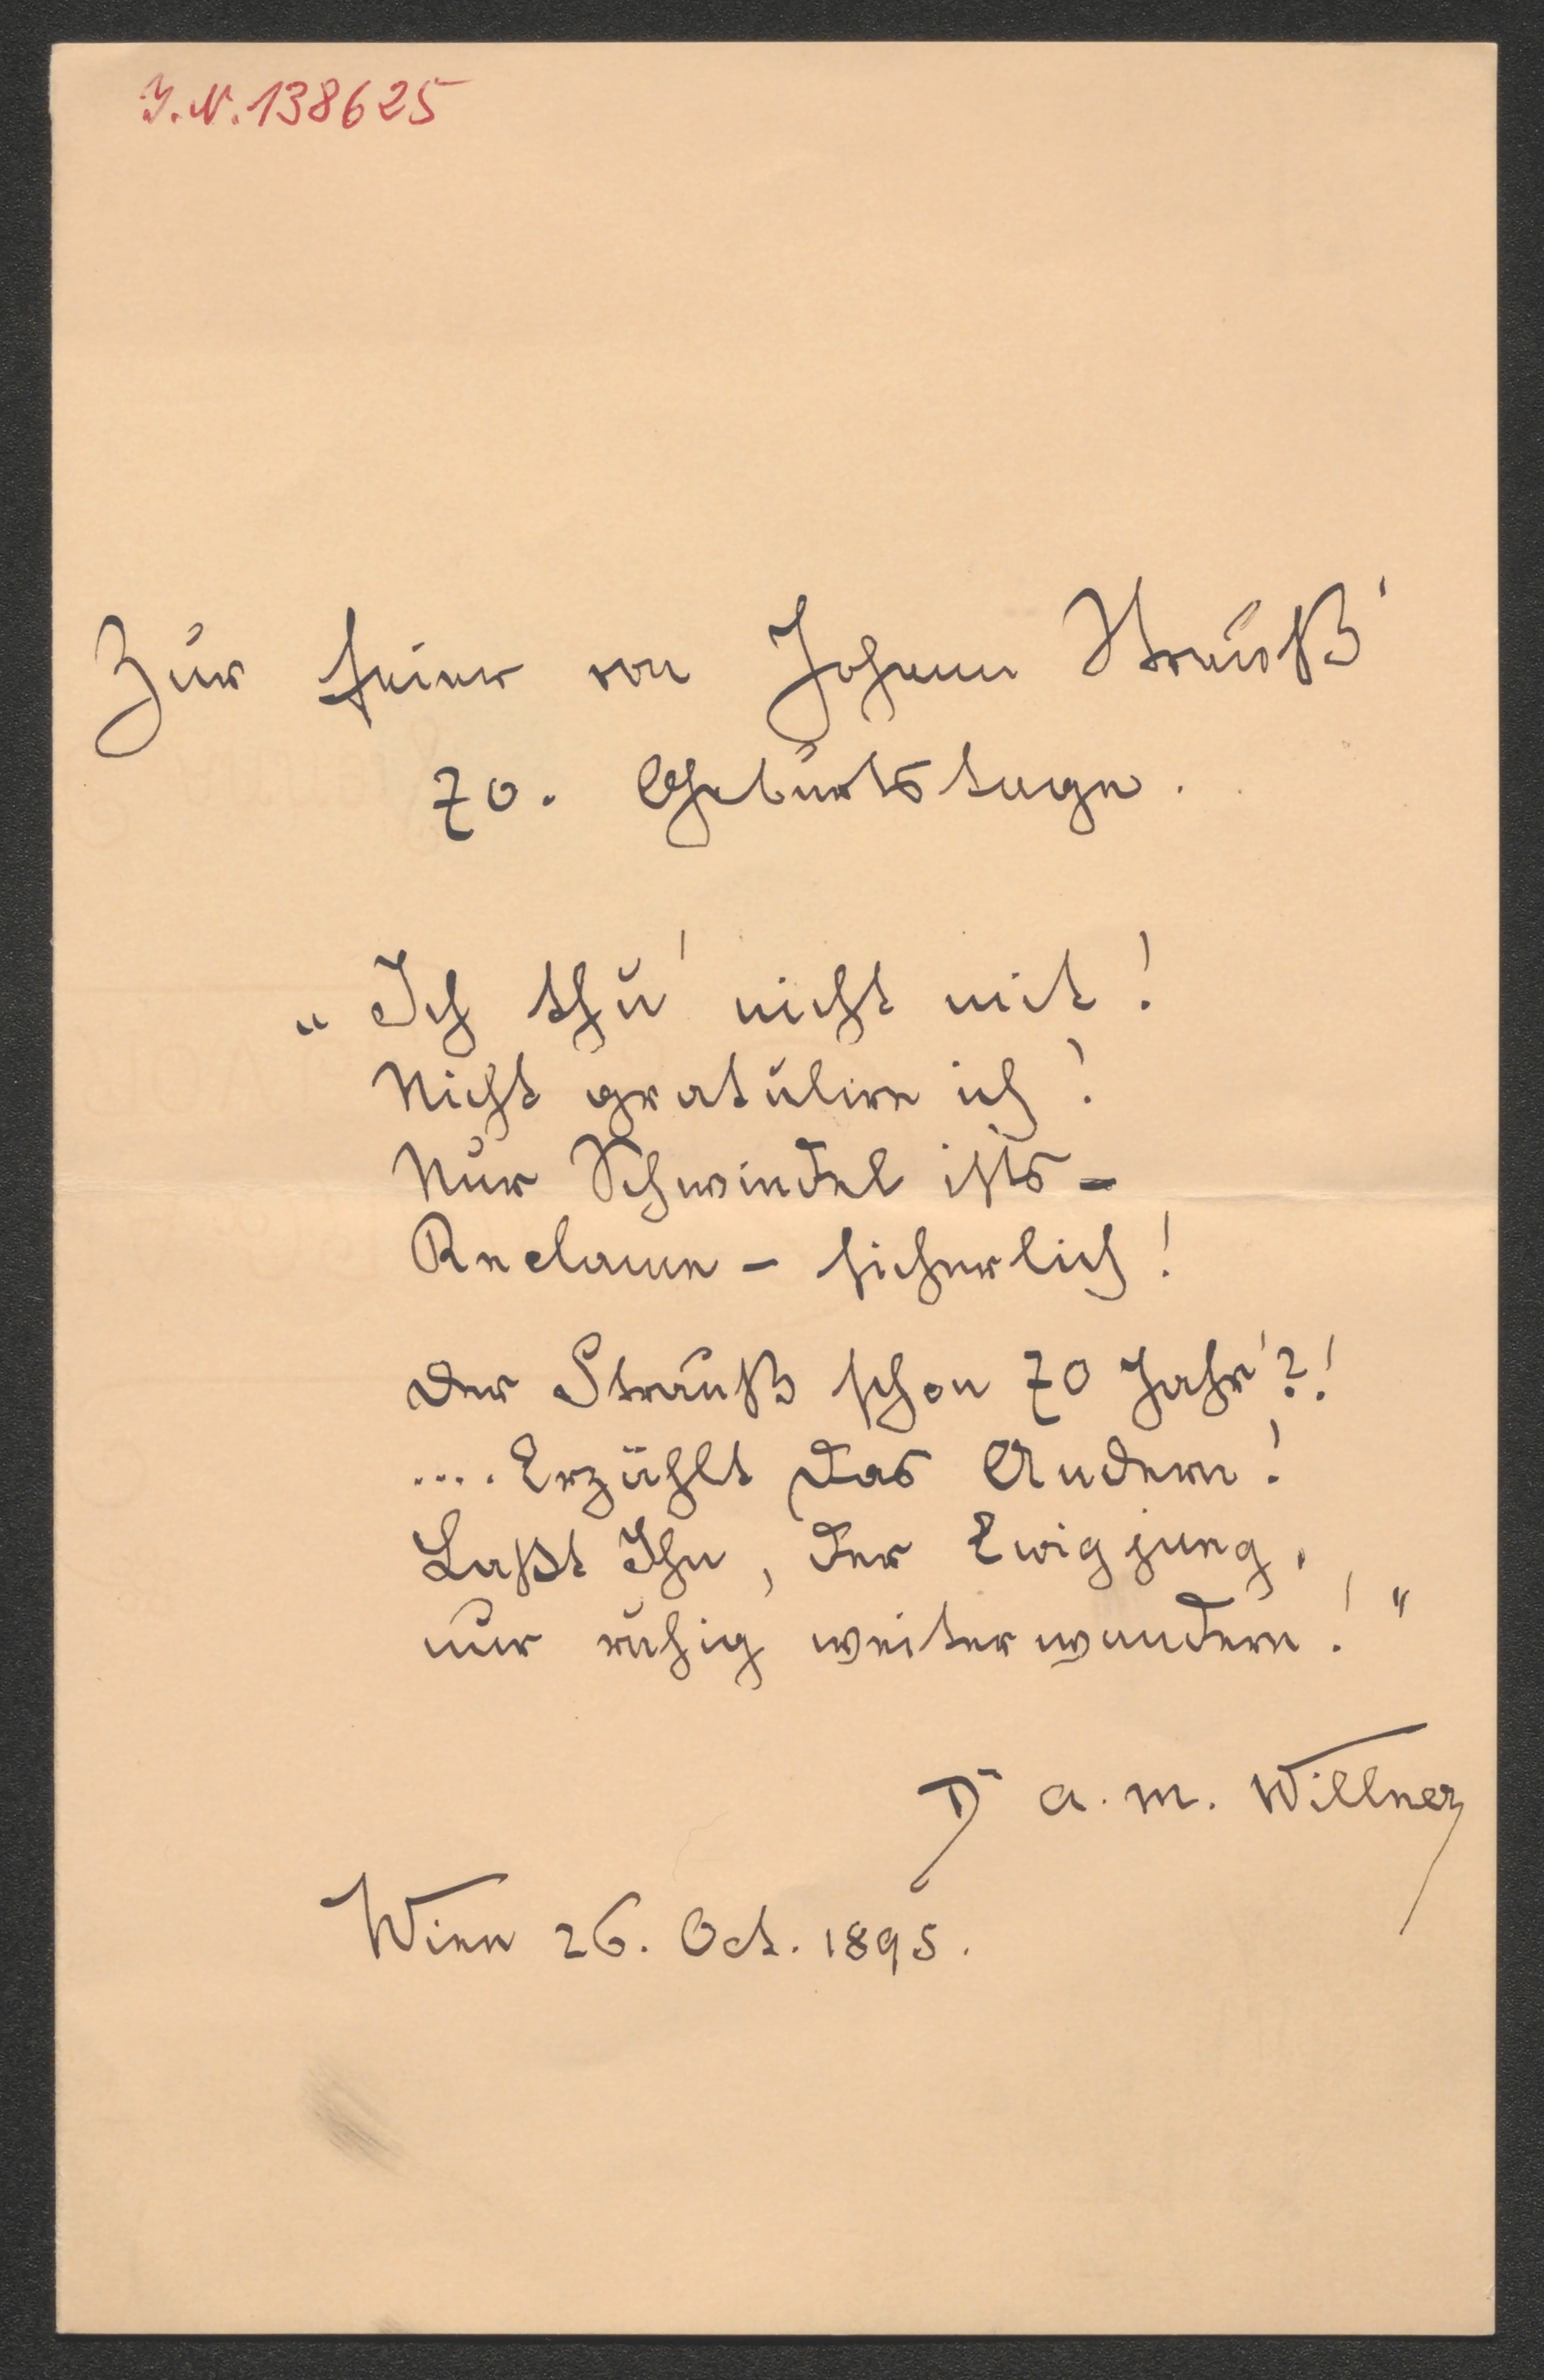 J.N. 138625
Zur Feier von Johann Strauß'
70. Geburtstage.
„Ich thu' nicht mit!
Nicht gratulire ich!
Nur Schwindel ists –
Reclame – sicherlich!
Der Strauß schon 70 Jahr'?!
.... Erzählt das Andern!
Laßt Ihn, der Ewig jung,
nur ruhig weiter wandern!"
Dr A. M. Willner
Wien 26. Oct. 1895.